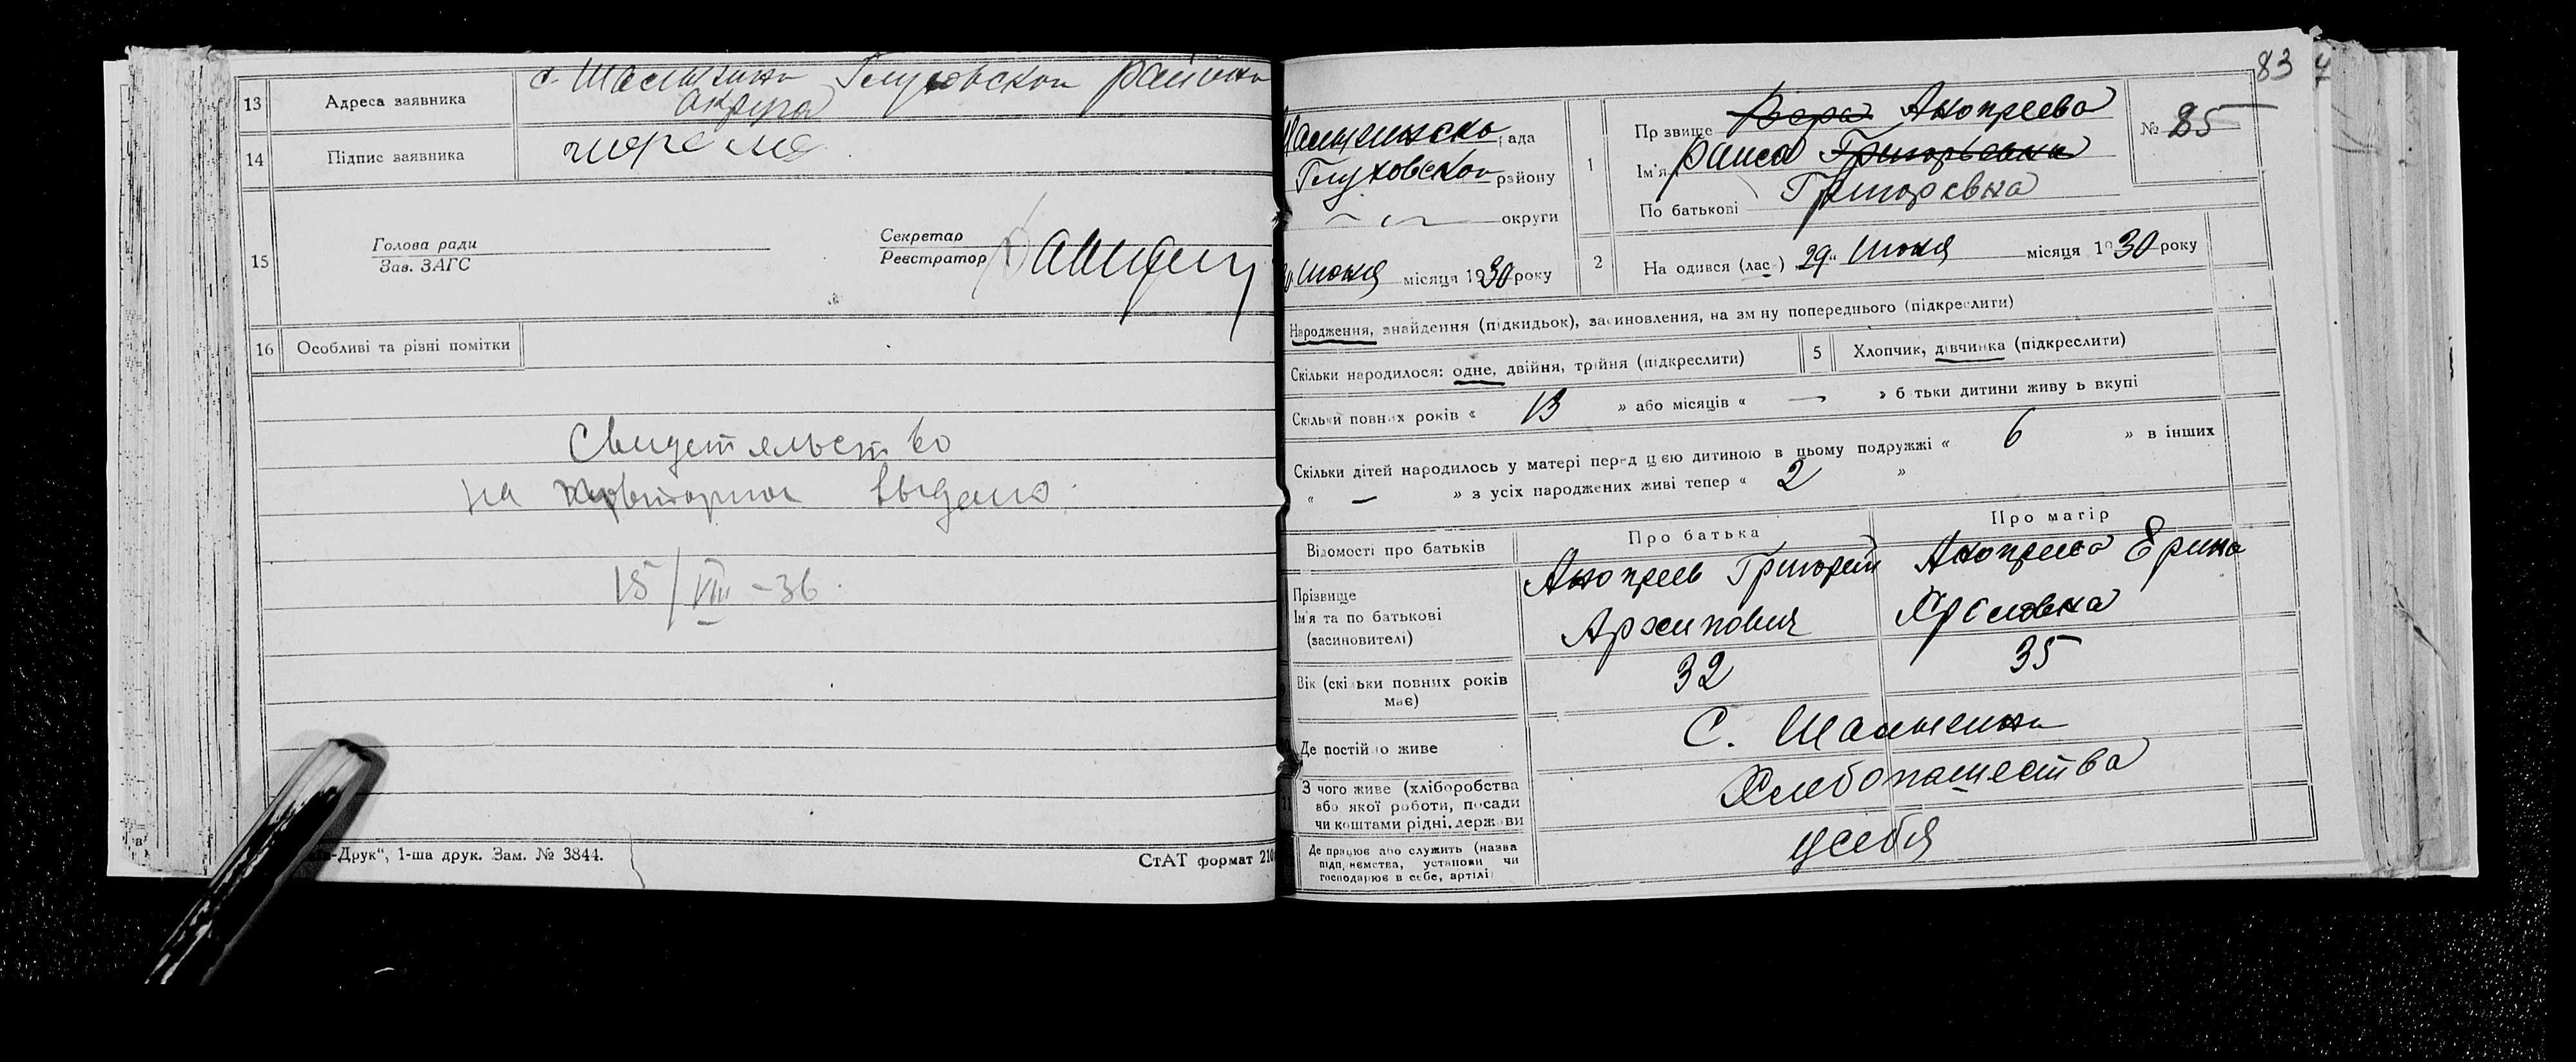 13 Адреса заявника с. Шалыгина Глуховскои района
округа
14 Підпис заявника
15 Голова ради
Зав. ЗАГС
Секретар
Реєстратор
16 Особливі та різні помітки
Свидетяльство
на выдано
15/VIII-36.
-Друк“, 1-ша друк. Зам. № 3844.
СтАТ формат 210
83
ада
Глуховскои району
округи
Июня місяця 1930 року
1 Пр звище Вера Анопреева
Ім'я Раиса Григорьевна
По батькові Григоревна
№ 85
2 На одився (лас-) 29 Июня місяця 1930 року
Народження, знайдення (підкидьок), засиновлення, на зм ну попереднього (підкреслити)
Скільки народилося: одне, двійня, трійня (підкреслити)
5 Хлопчик, дівчинка (підкреслити)
Скільки повних років « 13 » або місяців « — » б тьки дитини живу ь вкупі
Скільки дітей народилось у матері перед цією дитиною в цьому подружжі « 6 » в інших
« — » з усіх народжених живі тепер « 2 »
Відомості про батьків
Про батька
Про матір
Прізвище
Ім'я та по батькові
(засиновителі)
Анопреев Григорий
Архипович
Анопреева Ерина
Вік (скільки повних років
має)
32
35
Де постійно живе
С. Шалыгина
З чого живе (хліборобства
або якої роботи, посади
чи коштами рідні, держави
Хлебопашества
Де працює або служить (назва
підприємства, установи чи
господарює в себе, артілі)
усебя